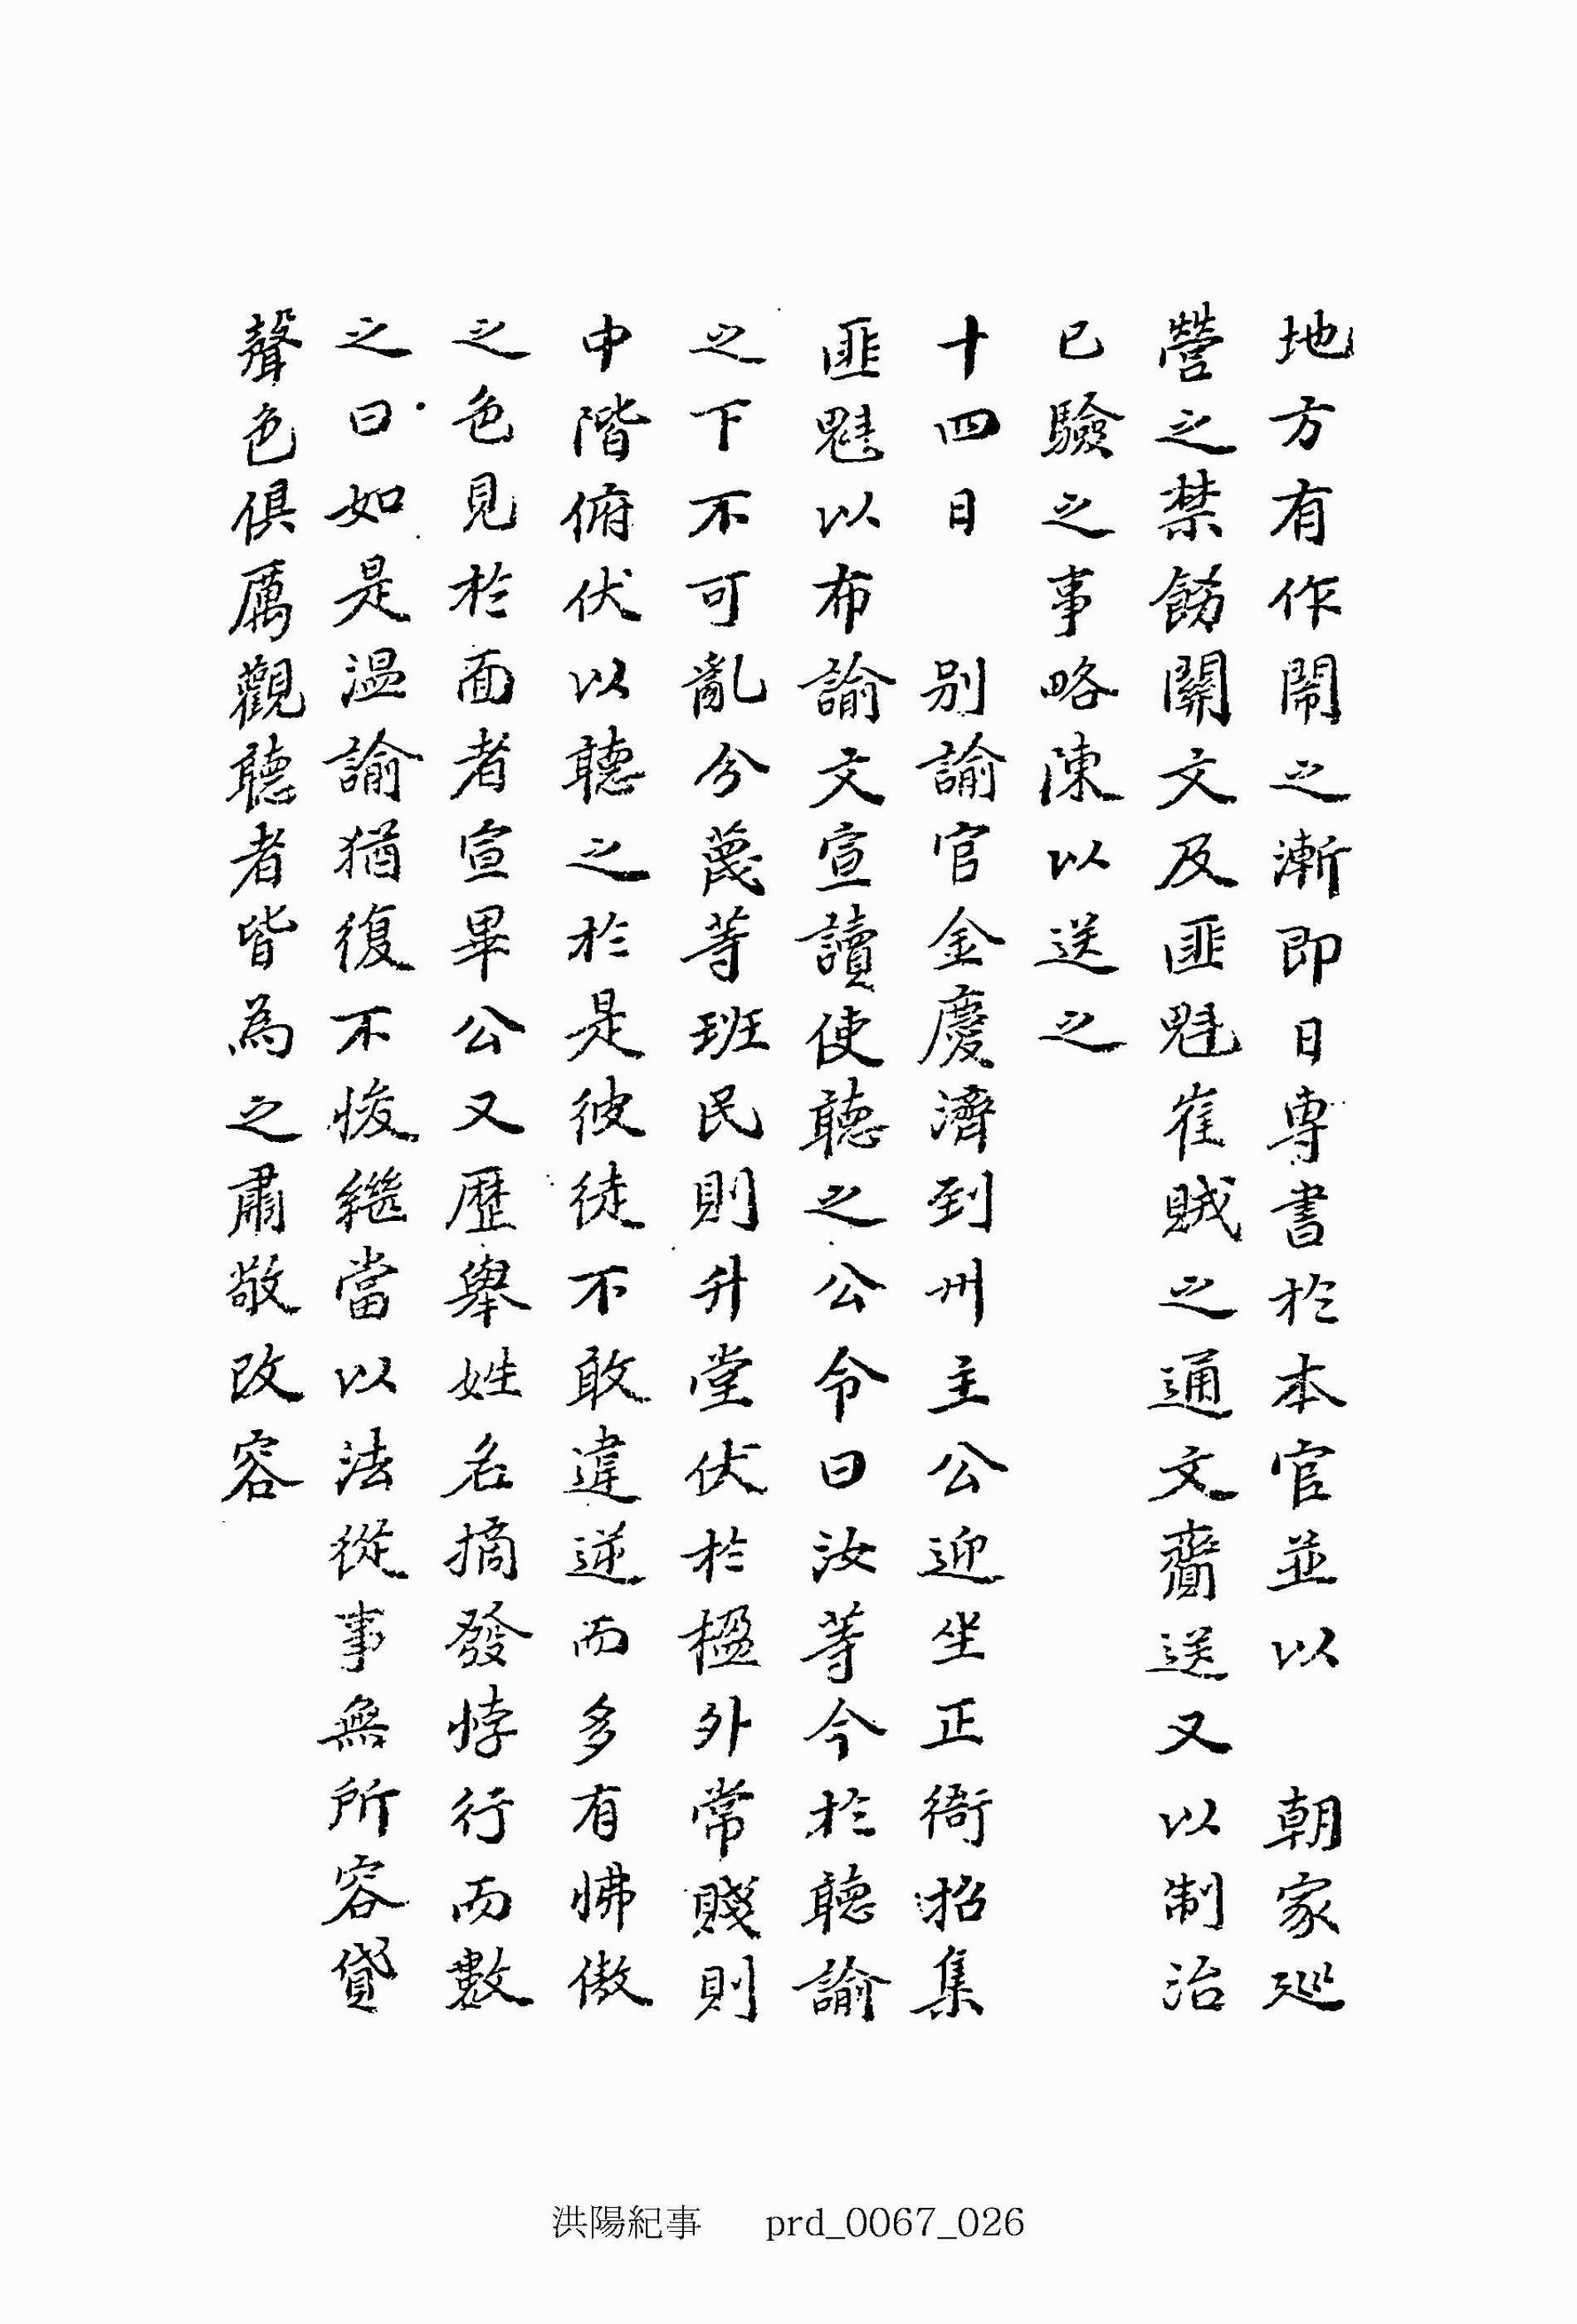 地方有作鬧之漸即日專書於本官並以 朝家巡
營之禁飭關文及匪魁崔賊之通文賫送又以制治
已驗之事略陳以送之
十四日 別諭官金慶濟到州主公迎坐正衙招集
匪魁以布諭文宣讀使聽之公令曰汝等今於聽諭
之下不可亂分蔑等班民則升堂伏於楹外常賤則
中階俯伏以聽之於是彼徒不敢違逆而多有怫傲
之色見於面者宣畢公又歷舉姓名摘發悖行而數
之曰如是溫諭猶復不悛繼當以法從事無所容貸
聲色俱厲觀聽者皆為之肅敬改容
洪陽紀事 prd_0067_026